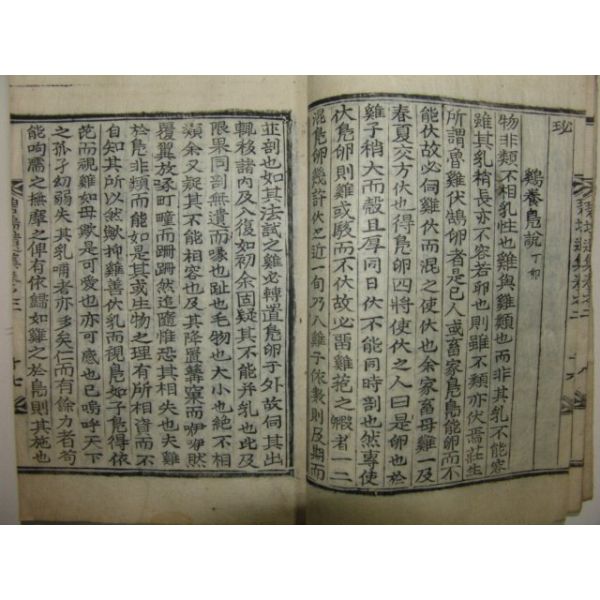 珌
鷄養鳧說 丁卯
物非類不相乳性也雞與雞類也而非其乳不能容
雖其乳稍長亦不容若卵也則雖不類亦伏焉莊生
所謂魯雞伏鵠卵者是已人或畜家鳧鳧能卵而不
能伏故必伺雞伏而混之使伏也余家畜母雞及
春夏交方伏也得鳧卵四將使伏之人曰是卵也於
雞子稍大而殼且厚同日伏不能同時剖也然專使
伏鳧卵則雞或駭而不伏必留雞菢之毈者一二
混鳧卵幾許伏之近一旬乃入雞子依數則及期而
並剖也如其法試之雞必轉置鳧卵子外故伺其出
輒移諸內及入復如初余固疑其不能并乳也比及
限果同剖無遺而喙也趾也毛物也大小也絶不相
類余又疑其不能相容也及其降置篝窜而咿咿然
覆翼放啄町疃而跚跚然追隨惟恐其相失也夫雞
於鳧非類而能如是其或生物之理有所相資而不
自知其所以然歟抑雞善伏乳而視鳧如子鳧得依
芘而視雞如母歟是可愛也亦可感也已嗚呼天下
之孤孑幼弱失其乳哺者亦多矣仁而有餘力者苟
能呴濡之撫摩之俾有依歸如雞之於鳧則其施也